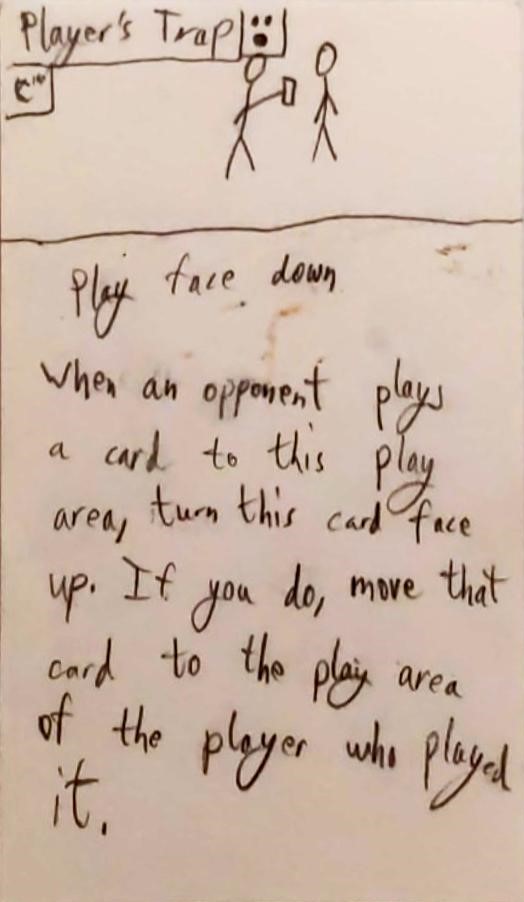 Player's Trap
Play face down
When an opponent plays
a card to this play
area, turn this card face
up. If you do, move that
card to the play area
of the player who played
it.